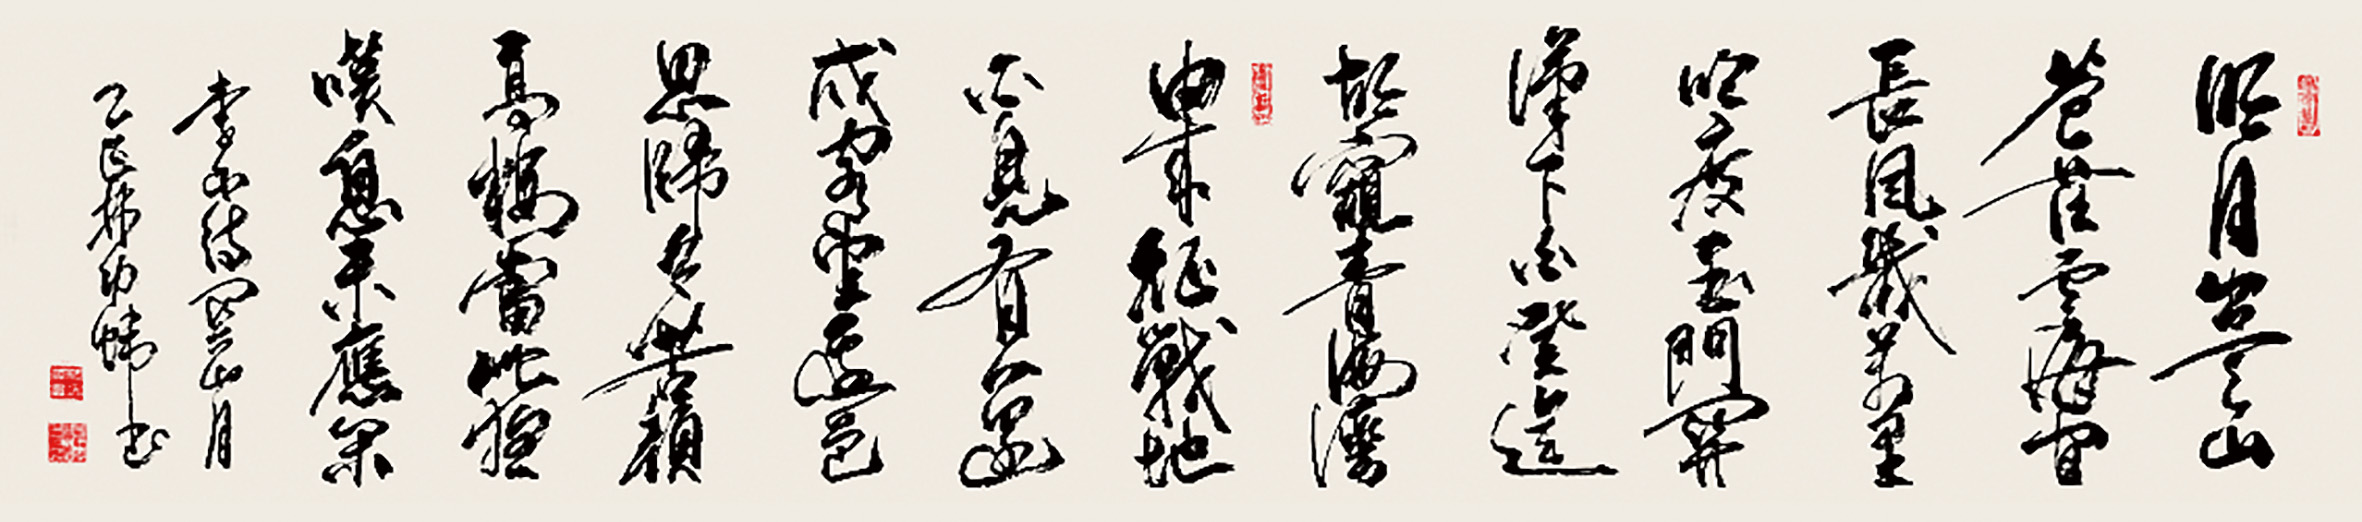 明月出天山
蒼茫雲海間
長風幾萬里
吹度玉門關
漢下白登道
胡窺青海灣
由來征戰地
不見有人還
戍客望邊邑
思歸多苦顏
高樓當此夜
嘆息未應閑
李白詩關山月
乙巳 书